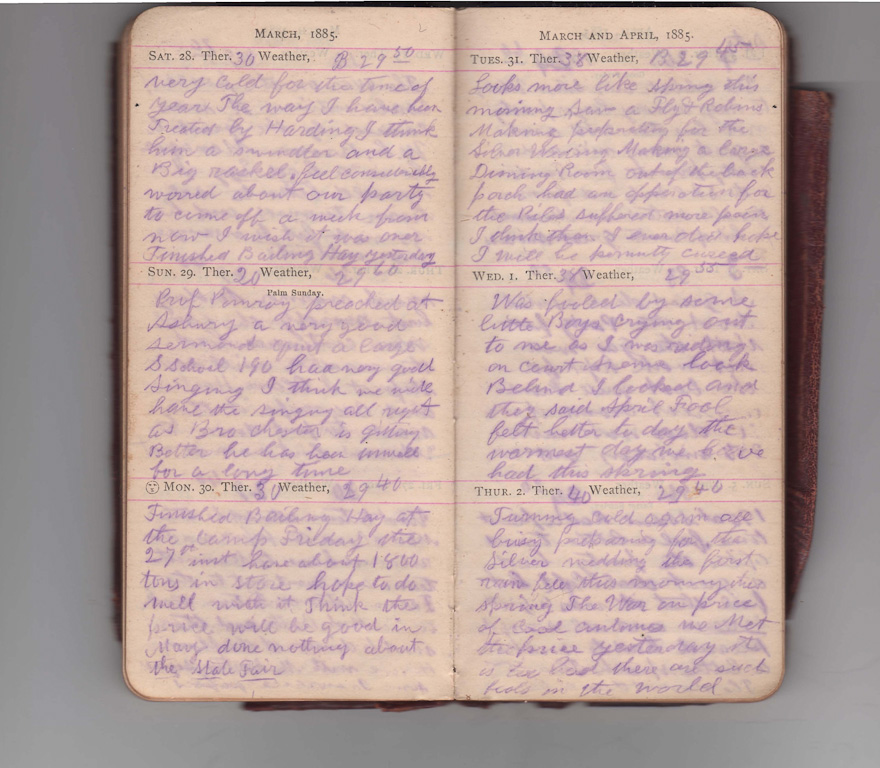 MARCH, 1885.
SAT. 28. Ther. 30 Weather, B 29 50
very cold for the time of
year The way I have been
Treated by Harding I think
him a swindler and a
Big rackel. feel considerably
worred about our party
to come off a week from
now I wish it was over
Finished Bailing Hay yesterday
SUN. 29. Ther. 20 Weather, 29 60
Palm Sunday.
Prof preached at
Asbury a very good
sermond quit a large
S School 190 had very good
Singing I think we will
have the singing all right
as Bro Chester is getting
Better he has been unwell
for a long time
MON. 30. Ther. 30 Weather, 29 40
Finished Bailing Hay at
the Camp Friday the
27 inst have about 1800
tons in store hope to do
well with it Think the
price will be good in
May done nothing about
the State Fair
MARCH AND APRIL, 1885.
TUES. 31. Ther. 38 Weather, B 29 45
Looks more like spring this
morning Saw a Fly & Robins
Making preperatory for the
Silver Weding Making a large
Dinning Room out of the back
porch had an opperation for
the Piles suffered more pain
I think than I ever did hope
I will be cureed
WED. 1. Ther. 38 Weather, 29 55
Was fooled by some
little Boys crying out
to me as I was riding
on court look
Behind I looked and
they said April Fool
felt better to day the
warmest day we have
had this spring
THUR. 2. Ther. 40 Weather, 29 40
Turning cold again all
busy preparing for the
Silver wedding the first
rain fell this morning this
spring The War on price
of Coal continue we Met
the price yesterday it
is too bad there are such
fools in the world